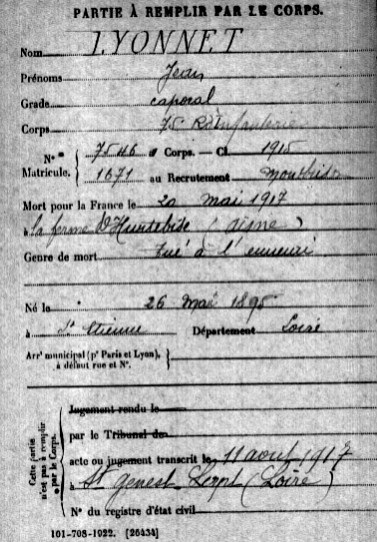 PARTIE À REMPLIR PAR LE CORPS.
Nom LYONNET
Prénoms Jean
Grade caporal
Corps 75 R d'infanterie
N° Matricule. 7546 au Corps. — Cl 1915
1671 au Recrutement Montbrison
Mort pour la France le 20 mai 1917
à la ferme d'Hurtebise (aisne)
Genre de mort tué à l'ennemi
Né le 26 Mai 1895
à St Etienne Département Loire
Arrt municipal (pr Paris et Lyon), à défaut rue et N°.
Cette partie n'est pas à remplir par le Corps.
Jugement rendu le
par le Tribunal de
acte ou jugement transcrit le 11 aout 1917
à St Genest Lerpt (Loire)
N° du registre d'état civil
101-708-1922. [26434]